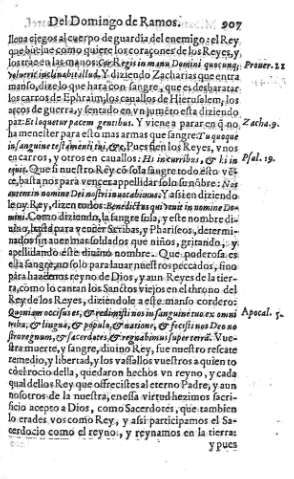 Del Domingo de Ramos. 907
lleua ciegos al cuerpo de guardia del enemigo: el Rey
que buelue como quiere los coraçones de los Reyes, y
los trae en las manos: Cor Regis in manu Domini quocunq; Prouer. 21
voluerit inclinabit illud. Y diziendo Zacharias que entra
manso, dize lo que hara con sangre, que es desbaratar
los carros de Ephraim, los cauallos de Hierusalem, los
arcos de guerra, y sentado en vn jumēto esta diziendo
paz: Et loquetur pacem gentibus. Y viene a parar en q̄ no Zacha. 9.
ha menester para esto mas armas que sangre: Tu quoque
in sanguine testamenti tui, &c. Pues sien los Reyes, vnos
en carros, y otros en cauallos: Hi in curribus, & hi in Psal. 19.
equis. Que si nuestro Rey cō sola sangre todo esto vē
ce, basta nos para vencer appellidar solo su nōbre: Nos
autem in nomine Dei nostri inuocabimus. Y assi en diziendo
le oy Rey, dizen todos: Benedictus qui venit in nomine Do-
mini. Como diziendo, la sangre sola, y este nombre di-
uino, basta para vencer Scribas, y Phariseos, determi-
nados sin auer mas soldados que niños, gritando, y
apellidando este diuino nombre. Que poderosa es
esta sangre, no solo para lauar nuestros peccados, sino
para hazeros reyno de Dios, y aun Reyes de la tier-
ra, como lo cantan los Sanctos viejos en el throno del
Rey de los Reyes, diziendole a este manso cordero:
Quoniam occisus es, & redimisti nos in sanguine tuo ex omni Apocal. 5.
tribu, & lingua, & populo, & natione, & fecisti nos Deo no
stro regnum, & sacerdotes, & regnabimus super terrā. Vue-
stra muerte, y sangre, diuino Rey, fue nuestro rescate
remedio, y libertad, y los vassallos vuestros a quien to
có el rocio della, quedaron hechos vn reyno, y cada
qual dellos Rey que offrecistes al eterno Padre, y aun
nosotros de la nuestra, en essa virtud hezimos sacri-
ficio acepto a Dios, como Sacerdotes, que tambien
lo erades vos como Rey, y assi participamos el Sa-
cerdocio como el reyno, y reynamos en la tierra:
y pues